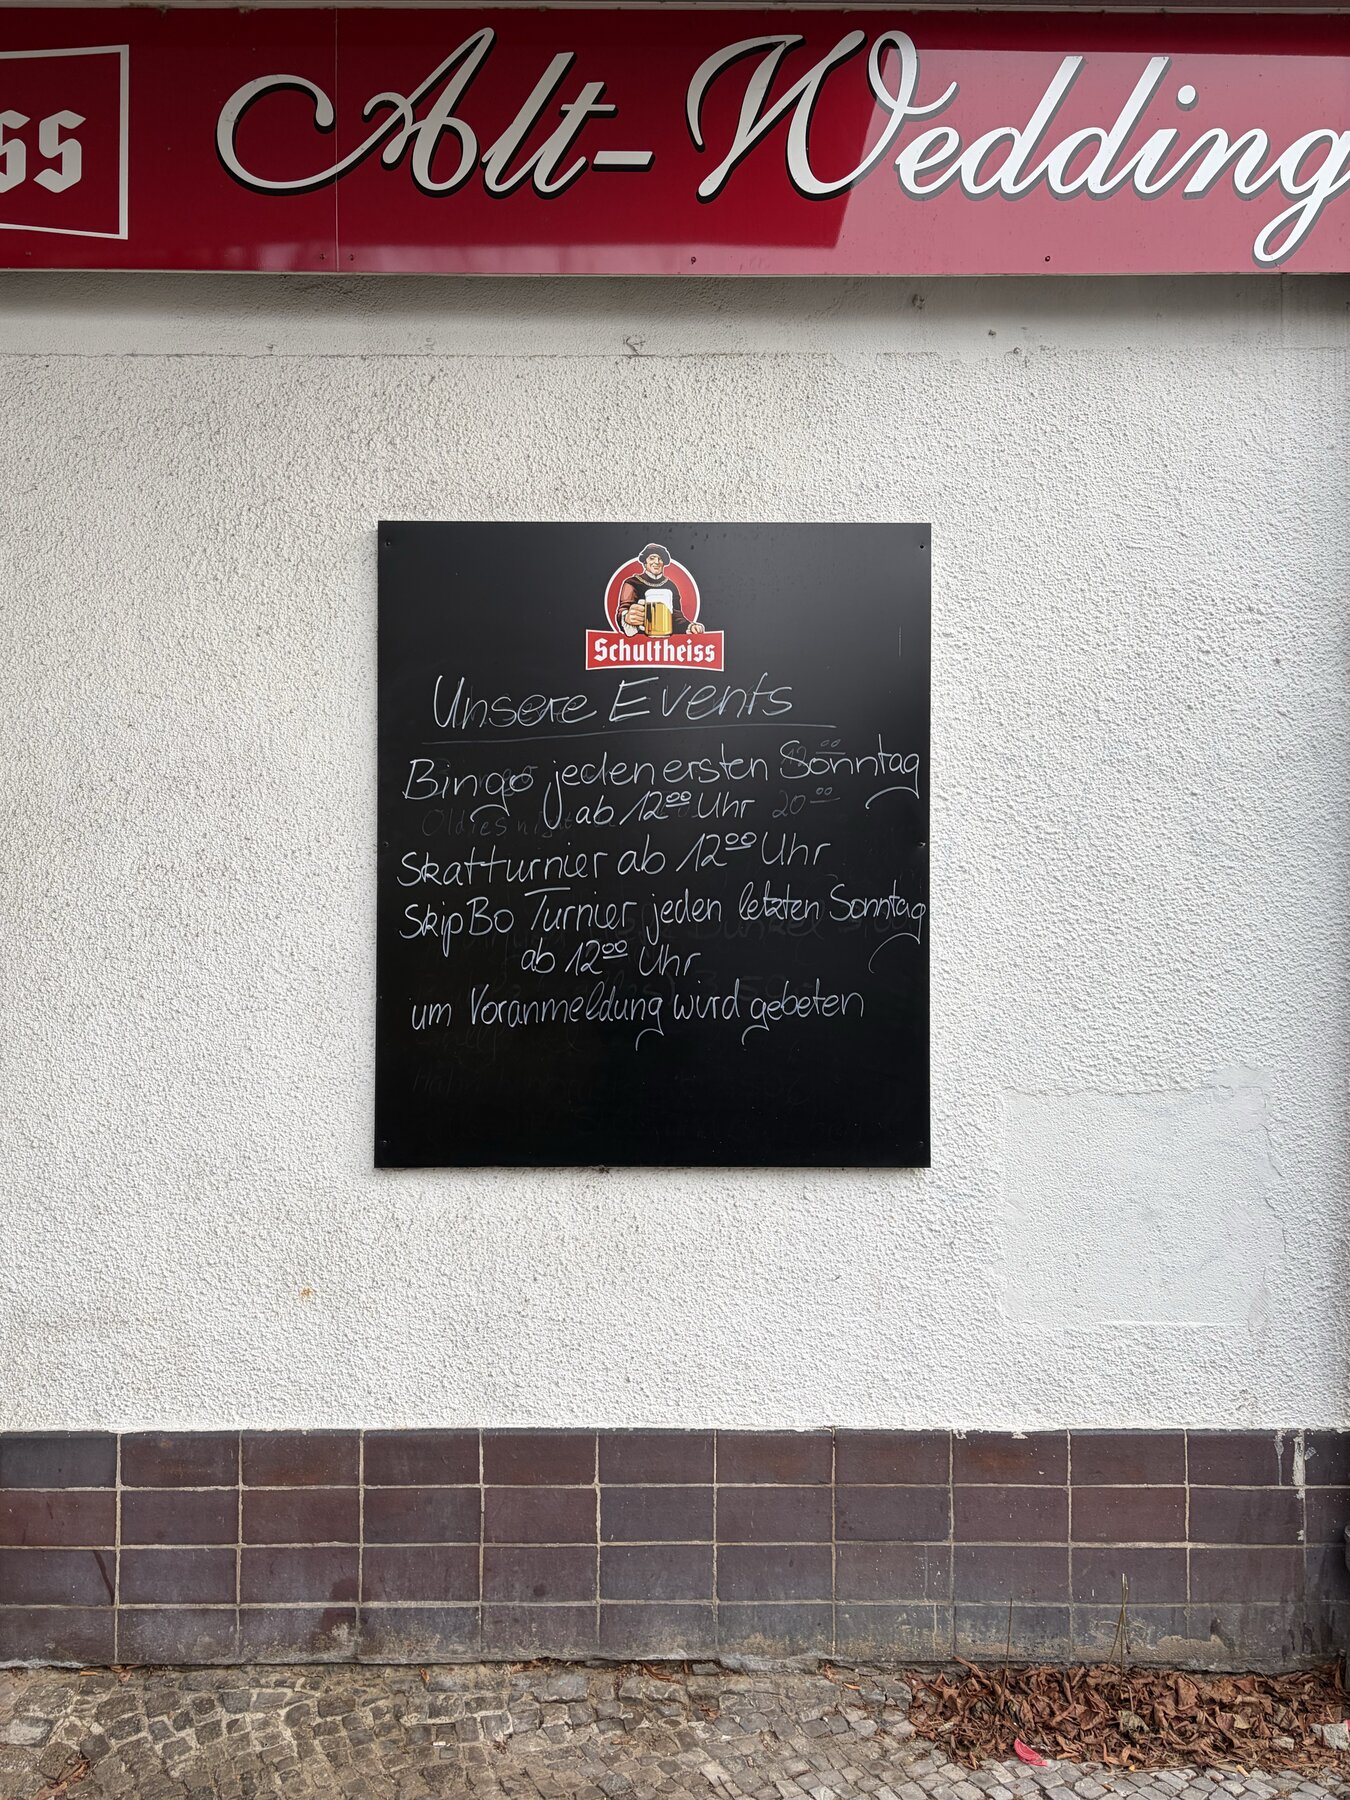 ss Alt-Wedding
Schultheiss
Unsere Events
Bingo jeden ersten Sonntag
ab 12⁰⁰ Uhr
Skatturnier ab 12⁰⁰ Uhr
SkipBo Turnier jeden letzten Sonntag
ab 12⁰⁰ Uhr
um Voranmeldung wird gebeten